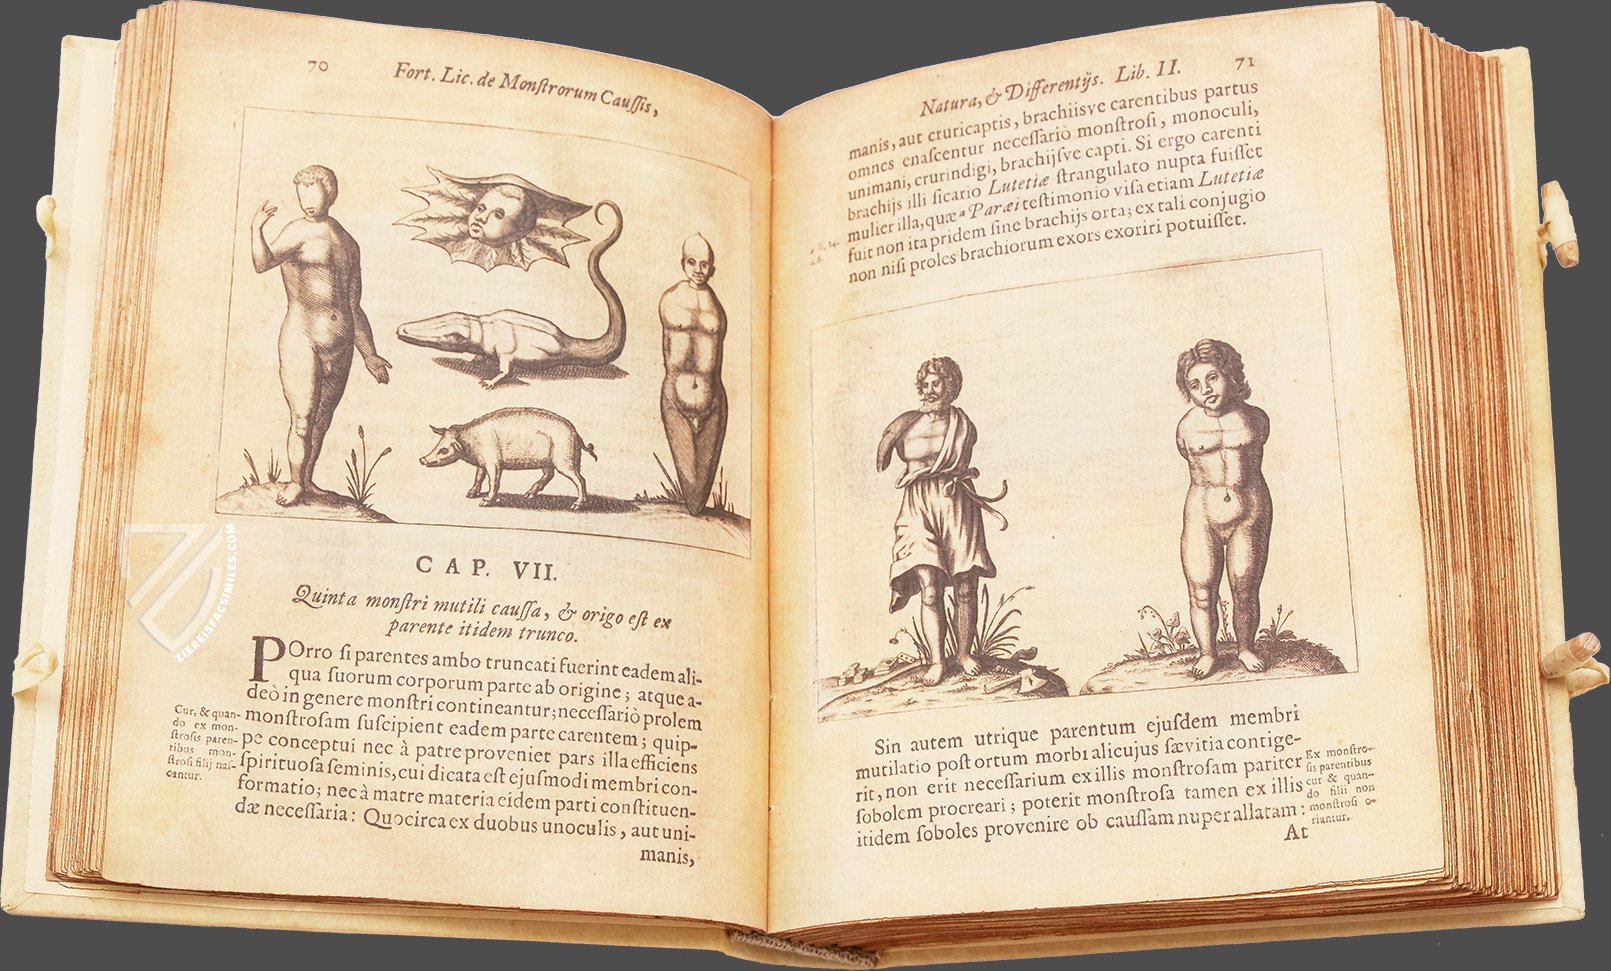 70
Fort. Lic. de Monſtrorum Cauſſis,
CAP. VII.
Quinta monſtri mutili cauſſa, & origo eſt ex
parente itidem trunco.
POrro ſi parentes ambo truncati fuerint eadem ali-
qua ſuorum corporum parte ab origine; atque a-
deò in genere monſtri contineantur; neceſſariò prolem
monſtroſam ſuſcipient eadem parte carentem; quip-
pe conceptui nec à patre proveniet pars illa efficiens
ſpirituoſa ſeminis, cui dicata eſt ejuſmodi membri con-
formatio; nec à matre materia eidem parti conſtituen-
dæ neceſſaria: Quocirca ex duobus unoculis, aut uni-
manis,
Cur, & quan-
do ex mon-
ſtroſis paren-
tibus mon-
ſtroſi filij naſ-
cantur.
ZIEREISFACSIMILES.COM
Natura, & Differentijs. Lib. II.
71
manis, aut cruricaptis, brachiisve carentibus partus
omnes enaſcentur neceſſariò monſtroſi, monoculi,
unimani, crurindigi, brachijſve capti. Si ergo carenti
brachijs illi ſicario Lutetiæ ſtrangulato nupta fuiſſet
mulier illa, quæ a Paræi teſtimonio viſa etiam Lutetiæ
fuit non ita pridem ſine brachijs orta; ex tali conjugio
non niſi proles brachiorum exors exoriri potuiſſet.
Sin autem utrique parentum ejuſdem membri
mutilatio poſt ortum morbi alicujus ſævitia contige-
rit, non erit neceſſarium ex illis monſtroſam pariter
ſobolem procreari; poterit monſtroſa tamen ex illis
itidem ſoboles provenire ob cauſſam nuper allatam:
At
Ex monſtro-
ſis parentibus
cur & quan-
do filii non
monſtroſi o-
riantur.